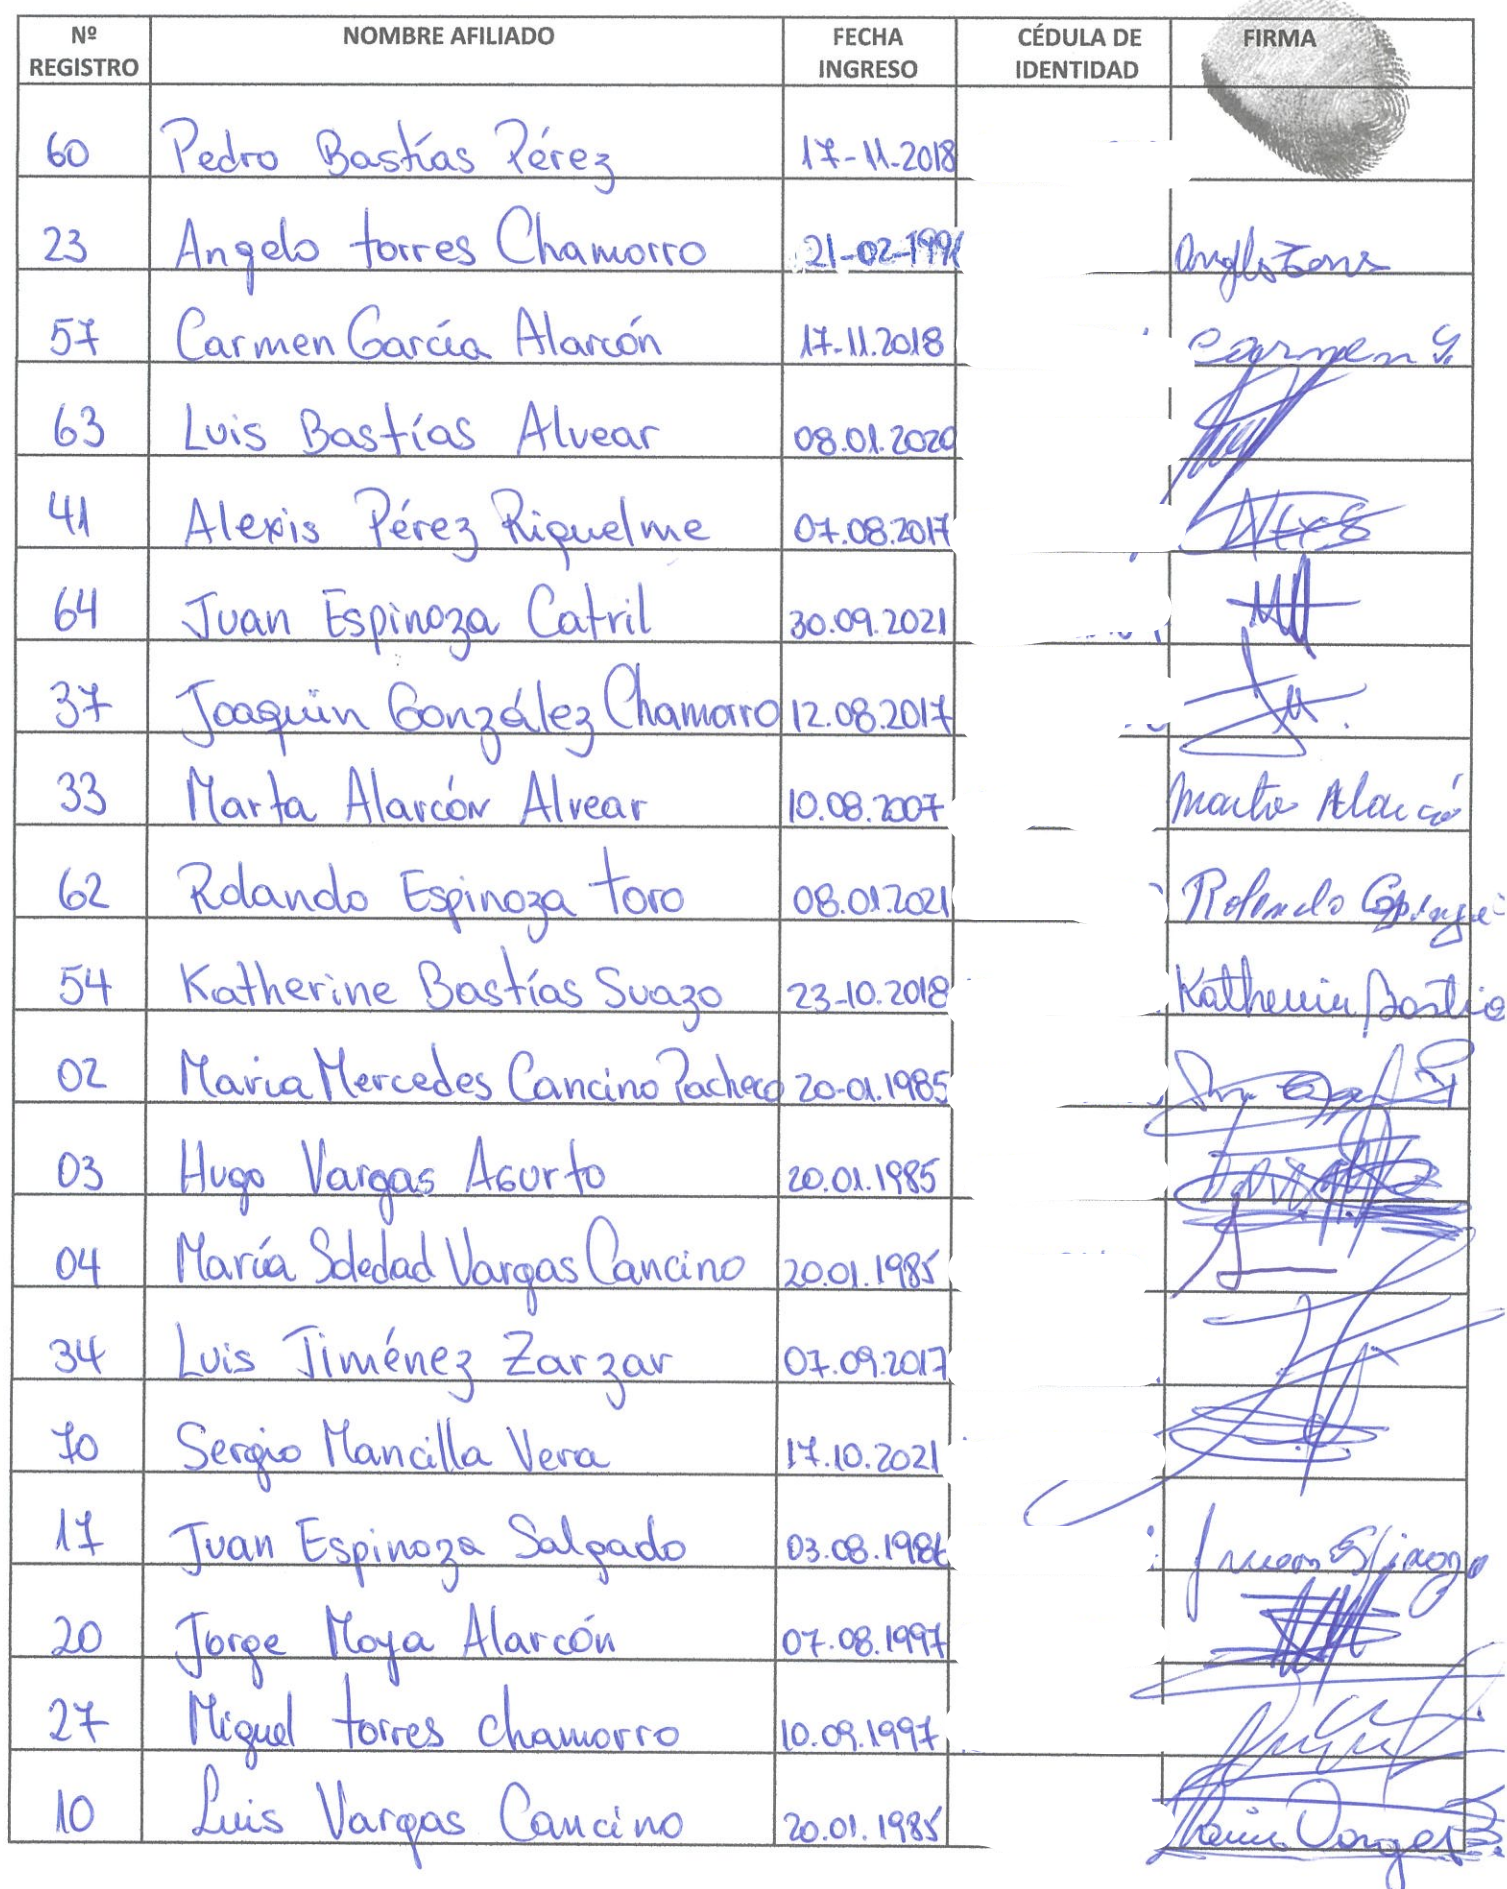 Nº REGISTRO NOMBRE AFILIADO FECHA INGRESO CÉDULA DE IDENTIDAD FIRMA
60 Pedro Bastías Pérez 17-11-2018
23 Angelo torres Chamorro 21-02-1991
57 Carmen García Alarcón 17-11.2018 Carmen G.
63 Luis Bastías Alvear 08.01.2020
41 Alexis Pérez Riquelme 07.08.2017
64 Juan Espinoza Catril 30.09.2021
37 Joaquin González Chamorro 12.08.2017
33 Marta Alarcón Alvear 10.08.2007 Marta Alarcó
62 Rolando Espinoza toro 08.01.2021 Rolando
54 Katherine Bastías Suazo 23-10.2018
02 Maria Mercedes Cancino Pacheco 20-01.1985
03 Hugo Vargas Agurto 20.01.1985
04 María Soledad Vargas Cancino 20.01.1985
34 Luis Jiménez Zarzar 07.09.2017
70 Sergio Mancilla Vera 17.10.2021
17 Juan Espinoza Salgado 03.08.1986
20 Jorge Moya Alarcón 07.08.1997
27 Miguel torres chamorro 10.09.1997
10 Luis Vargas Cancino 20.01.1985